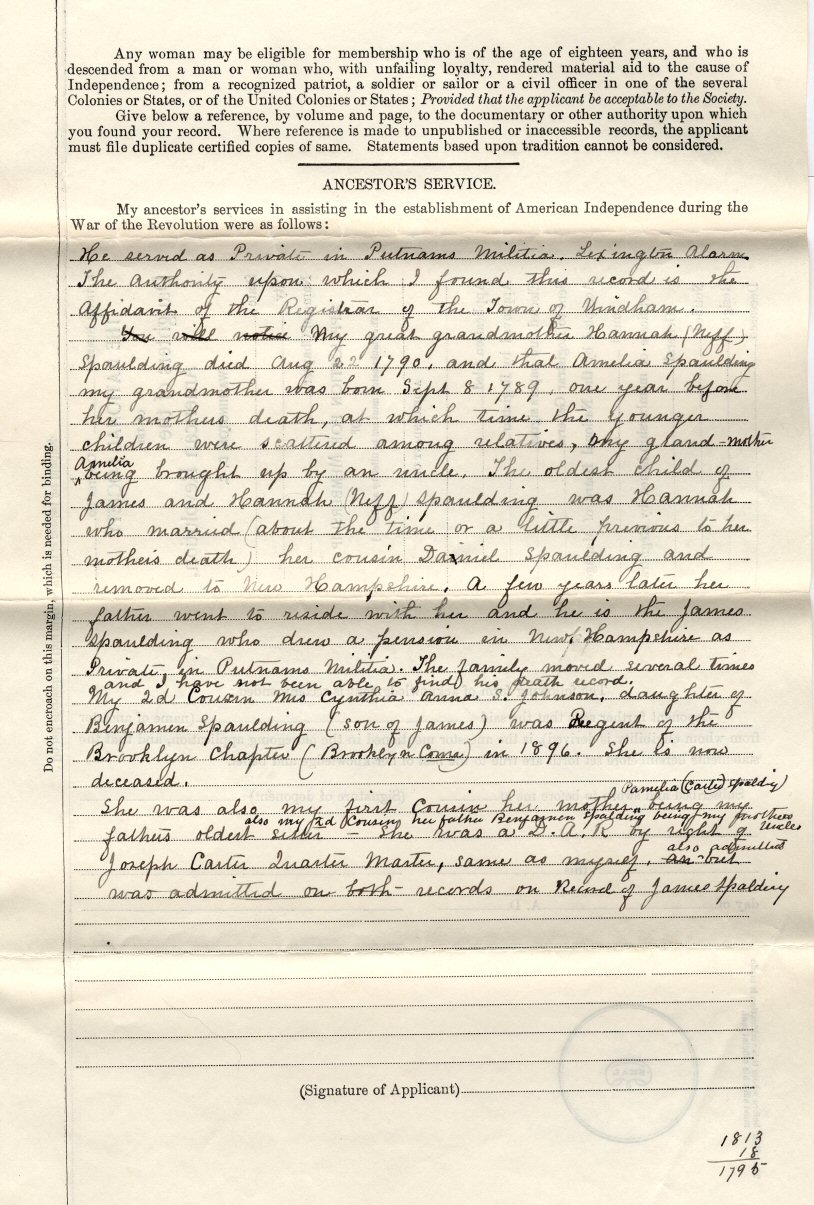 Any woman may be eligible for membership who is of the age of eighteen years, and who is
descended from a man or woman who, with unfailing loyalty, rendered material aid to the cause of
Independence; from a recognized patriot, a soldier or sailor or a civil officer in one of the several
Colonies or States, or of the United Colonies or States; Provided that the applicant be acceptable to the Society.
Give below a reference, by volume and page, to the documentary or other authority upon which
you found your record. Where reference is made to unpublished or inaccessible records, the applicant
must file duplicate certified copies of same. Statements based upon tradition cannot be considered.
ANCESTOR'S SERVICE.
My ancestor's services in assisting in the establishment of American Independence during the
War of the Revolution were as follows:
He served as Private in Putnams Militia. Lexington Alarm
The authority upon which I found this record is the
Affidavit of the Registrar of the Town of Windham.
You will notice My great grandmother Hannah (Neff)
Spaulding died Aug 22 1790, and that Amelia Spaulding
my grandmother was born Sept 8 1789, one year before
her mothers death, at which time the younger
children were scattered among relatives, my grand-mother
Amelia
being brought up by an uncle. The oldest child of
James and Hannah (Neff) Spaulding was Hannah
who married (about the time or a little previous to her
mothers death) her cousin Daniel Spaulding and
removed to New Hampshire. A few years later her
father went to reside with her and he is the James
Spaulding who drew a pension in New Hampshire as
Private, in Putnams Militia. The family moved several times
and I have not been able to find his death record.
My 2d Cousin Mrs Cynthia Anna S. Johnson, daughter of
Benjamen Spaulding (son of James) was Regent of the
Brooklyn Chapter (Brooklyn Conn) in 1896. She is now
deceased.
Pamelia (Carter) Spalding
She was also my first Cousin her mother being my
also my 2d Cousin, her father Benjamen Spalding being my mothers
Uncle
fathers oldest sister - She was a D.A.R by right of
Joseph Carter Quarter Master, same as myself.
also admitted
an but
was admitted on both records on Record of James Spalding
(Signature of Applicant)
Do not encroach on this margin, which is needed for binding.
1813
18
1795